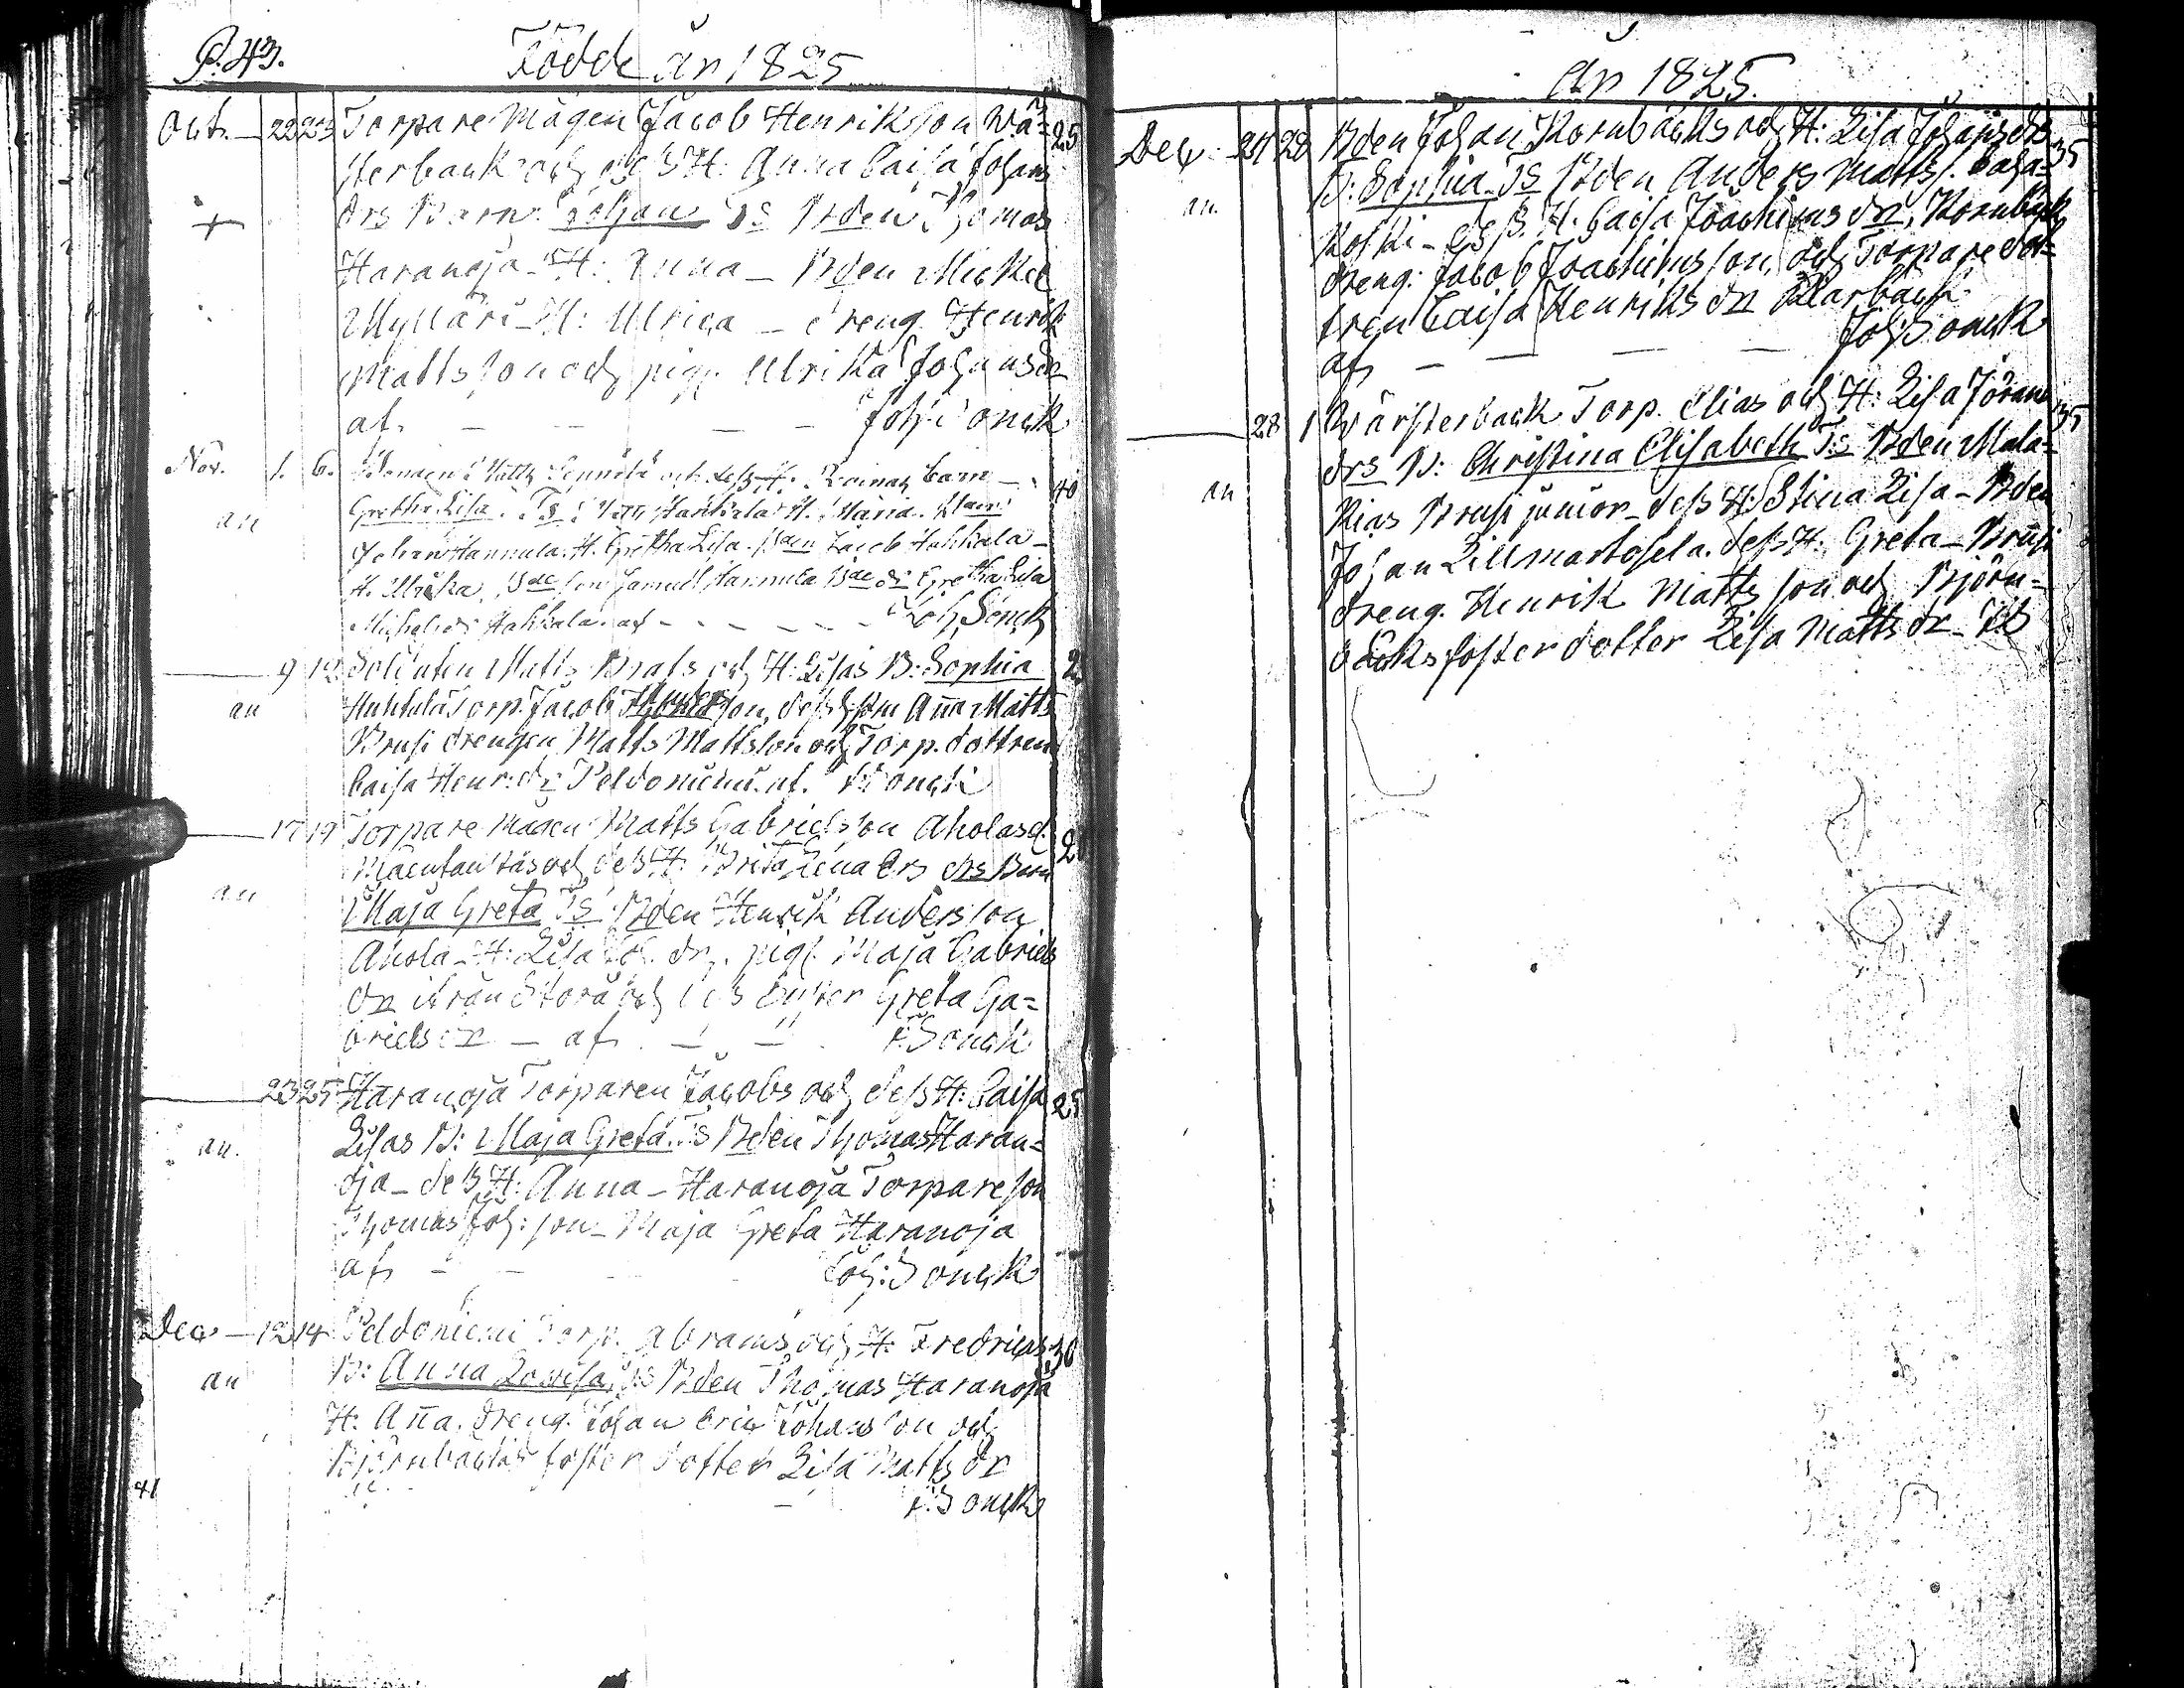 P. 43.
Födde år 1825
Oct. 22 23 Torpare Mågen Jacob Henriksson Wä= 25
sterback och dess H: Anna Caisa Johans
drs Barn: Johan Ts Bden Thomas
Haranoja - H: Anna - Bden Mickel
Mylläri - H: Ulrica - dreng Henrik
Mattsson och pig. Ulrika Johansdr
af - - - Joh: Sonck
Nov. 1. 6. Matts och dess H: barn 40
an Gretha Lisa. Ts: H. Maria.
Johan Hannula. H. Gretha Lisa. Jacob Hahkala -
H. Ulrika, son Samuel Hannula Gretha Lisa
Hahkala. af - - - - - Joh. Sonck
9 12 Soldaten Matts Brafs och H: Lisas B: Sophia
an Torp. Jacob son, Aña Matts
Brusi drengen Matts Mattsson och Torp. dottren
Caisa Henr: dr Peldoniemi. af. Sonck
17 19 Torpare Mågen Matts Gabrielsson Ahola
och dess H: Brita Lena drs Barn
an Maja Greta Ts Bden Henrik Andersson
Ahola - H: Lisa Joh. dr. pig. Maja Gabriels
dr ifrån Storå och Greta Ga=
briels dr - af - - J: Sonck
23 25 Haranoja Torparen Jacobs och dess H: Caisa 25
an. Lisas B: Maja Greta. Ts Bden Thomas Haran=
oja - dess H: Anna - Haranoja Torpareson
Thomas Joh: son - Maja Greta Haranoja
af - - Joh: Sonck
Dec - 12 14 Peldoniemi Torp. Abrams och H: Fredricas 30
an B: Anna Lovisa, Ts Bden Thomas Haranoja
H: Aña. dreng. Johan Eric Johansson och
Björnbacks foster dotter Lisa Matts dr
41 - J: Sonck
År 1825.
Dec. 24 28 Bden Johan Kornbacks och H: Lisa Johansdrs 35
an. B: Sophia Ts Bden Anders Matts s.
koski - dess H: Caisa Joachims dr, Kornback
dreng: Jacob Joachimsson, och Torpare dot=
tren Caisa Henriks dr
af - - - - Joh: Sonck
28 1 Wästerback Torp. Elias och H: Lisa Jörans 35
drs B: Christina Elisabeth Ts Bden Mala=
an kias Brusi junior - dess H: Stina Lisa - Bden
Johan dess H: Greta - Brusi
dreng. Henrik Mattsson och Björn=
backs foster dotter Lisa Matts dr